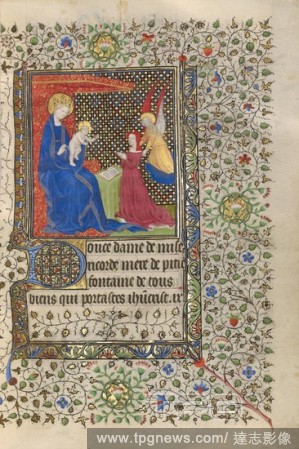 Douce dame de mise
ricorde mere de pitie
fontaine de tous
biens qui portastes ihucrist. ix
www.tpgnews.com/ 達志影像